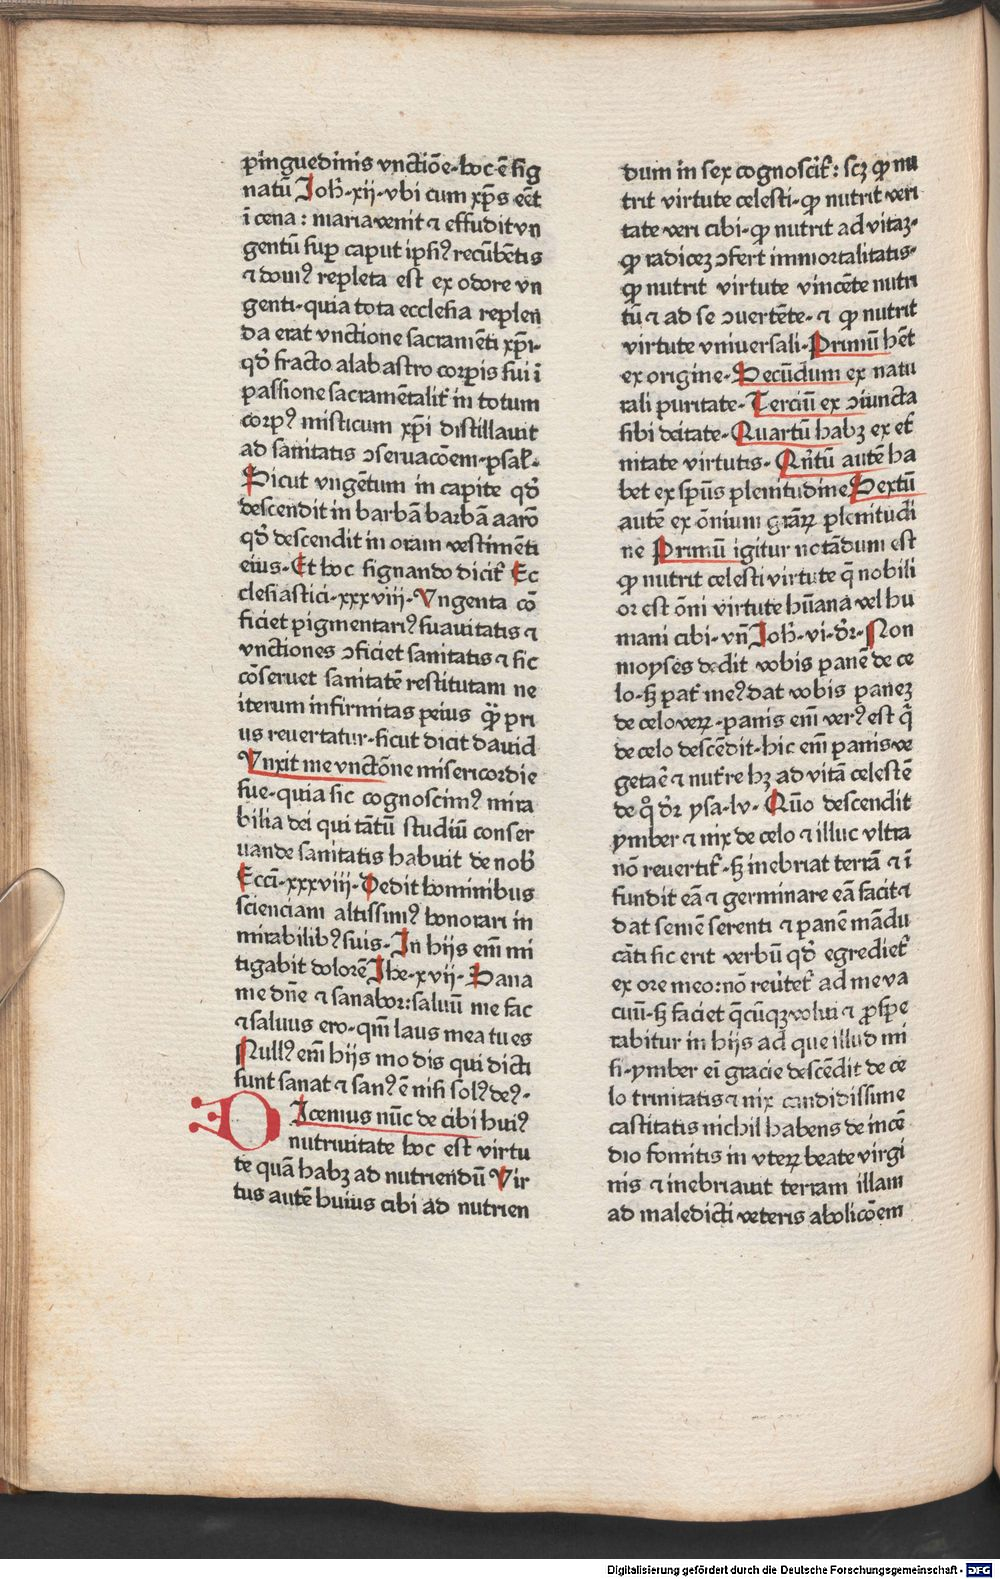 pinguedinis vnctiōe·hoc·ē sig
natū Joh̄·xij·vbi cum xp̄s eēt
ī cena : maria venit ⁊ effudit vn
gentū sup caput ipsiꝰ recūbētis
⁊ domꝰ repleta est ex odore vn
genti·quia tota ecclesia replen
da erat vnctione sacramēti xp̄i·
qd̄ fracto alabastro corpis sui ī
passione sacramētalit̄ in totum
corpꝰ misticum xp̄i distillauit
ad sanitatis ↄseruacōem·psal̄·
Sicut vngētum in capite qd̄
descendit in barbā barbā aarō
qd̄ descendit in oram vestimēti
eius·Et hoc signando dicit̄ Ec
clesiastici·xxxviij·Vngenta cō
ficiet pigmentariꝰ suauitatis ⁊
vnctiones ↄficiet sanitatis ⁊ sic
cōseruet sanitatē restitutam ne
iterum infirmitas peius q̄ꝫ pri
us reuertatur·sicut dicit dauid
Vnxit me vnctōne misericordie
sue·quia sic cognoscimꝰ mira
bilia dei qui tātū studiū conser
uande sanitatis habuit de nob̄
Ecci̅·xxxviij·Dedit hominibus
scienciam altissimꝰ honorari in
mirabilibꝰ suis·In hijs em̄ mi
tigabit dolorē Jhe·xvij·Sana
me dn̄e ⁊ sanabor:saluū me fac
⁊ saluus ero·qm̄ laus mea tu es
Nullꝰ em̄ hijs modis qui dicti
sunt sanat ⁊ sanꝰ ē nisi solꝰ deꝰ·
DIcemus nūc de cibi huiꝰ
nutriuitate hoc est virtu
te quā habꝫ ad nutriendū Vir
tus autē huius cibi ad nutrien
dum in sex cognoscit̄ : scꝫ ꝙ nu
trit virtute celesti·ꝙ nutrit veri
tate veri cibi·ꝙ nutrit ad vitaꝫ·
ꝙ radiceꝫ ↄfert immortalitatis·
ꝙ nutrit virtute vincēte nutri
tū ⁊ ad se ↄuertēte·⁊ ꝙ nutrit
virtute vniuersali·Primū hēt
ex origine·Secūdum ex natu
rali puritate·Terciū ex ↄiuncta
sibi dcitate·Quartū habꝫ ex et̄
nitate virtutis·Qn̄tū autē ha
bet ex sp̄us plenitudine Sextū
autē ex ōnium grāꝝ plenitudi
ne Primū igitur notādum est
ꝙ nutrit celesti virtute q̄ nobili
or est ōni virtute hūana vel hu
mani cibi·vn̄ Joh̄·vi·dr̄·Non
moyses dedit vobis panē de ce
lo·sꝫ pat̄ meꝰ dat vobis paneꝫ
de celo veꝝ·panis em̄ verꝰ est q̄
de celo descēdit·hic em̄ panis ve
getaē ⁊ nut̄re hꝫ ad vitā celestē
de q̊ dr̄ ysa·lv·Quō descendit
ymber ⁊ nix de celo ⁊ illuc vltra
nō reuertit̄·sꝫ inebriat terrā ⁊ ī
fundit eā ⁊ germinare eā facit ⁊
dat semē serenti ⁊ panē mādu
cāti sic erit verbū qd̄ egrediet̄
ex ore meo:nō reūtet̄ ad me va
cuū·sꝫ faciet q̄cūqꝫ volui ⁊ ꝓspe
rabitur in hijs ad que illud mi
si·ymber eī gracie descēdit de ce
lo trinitatis ⁊ nix candidissime
castitatis nichil habens de incē
dio fomitis in vteꝝ beate virgi
nis ⁊ inebriauit terram illam
ad maledicti veteris abolicōem
Digitalisierung gefördert durch die Deutsche Forschungsgemeinschaft - DFG